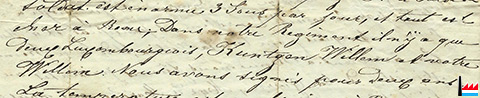 soldat est environ 3 sous par jour, et tout est
cher à Rome, Dans notre Regiment il n'y a que
deux Luxembourgeois, Küntgen Willem et notre
Willem. Nous avons signés pour deux ans
La temperature